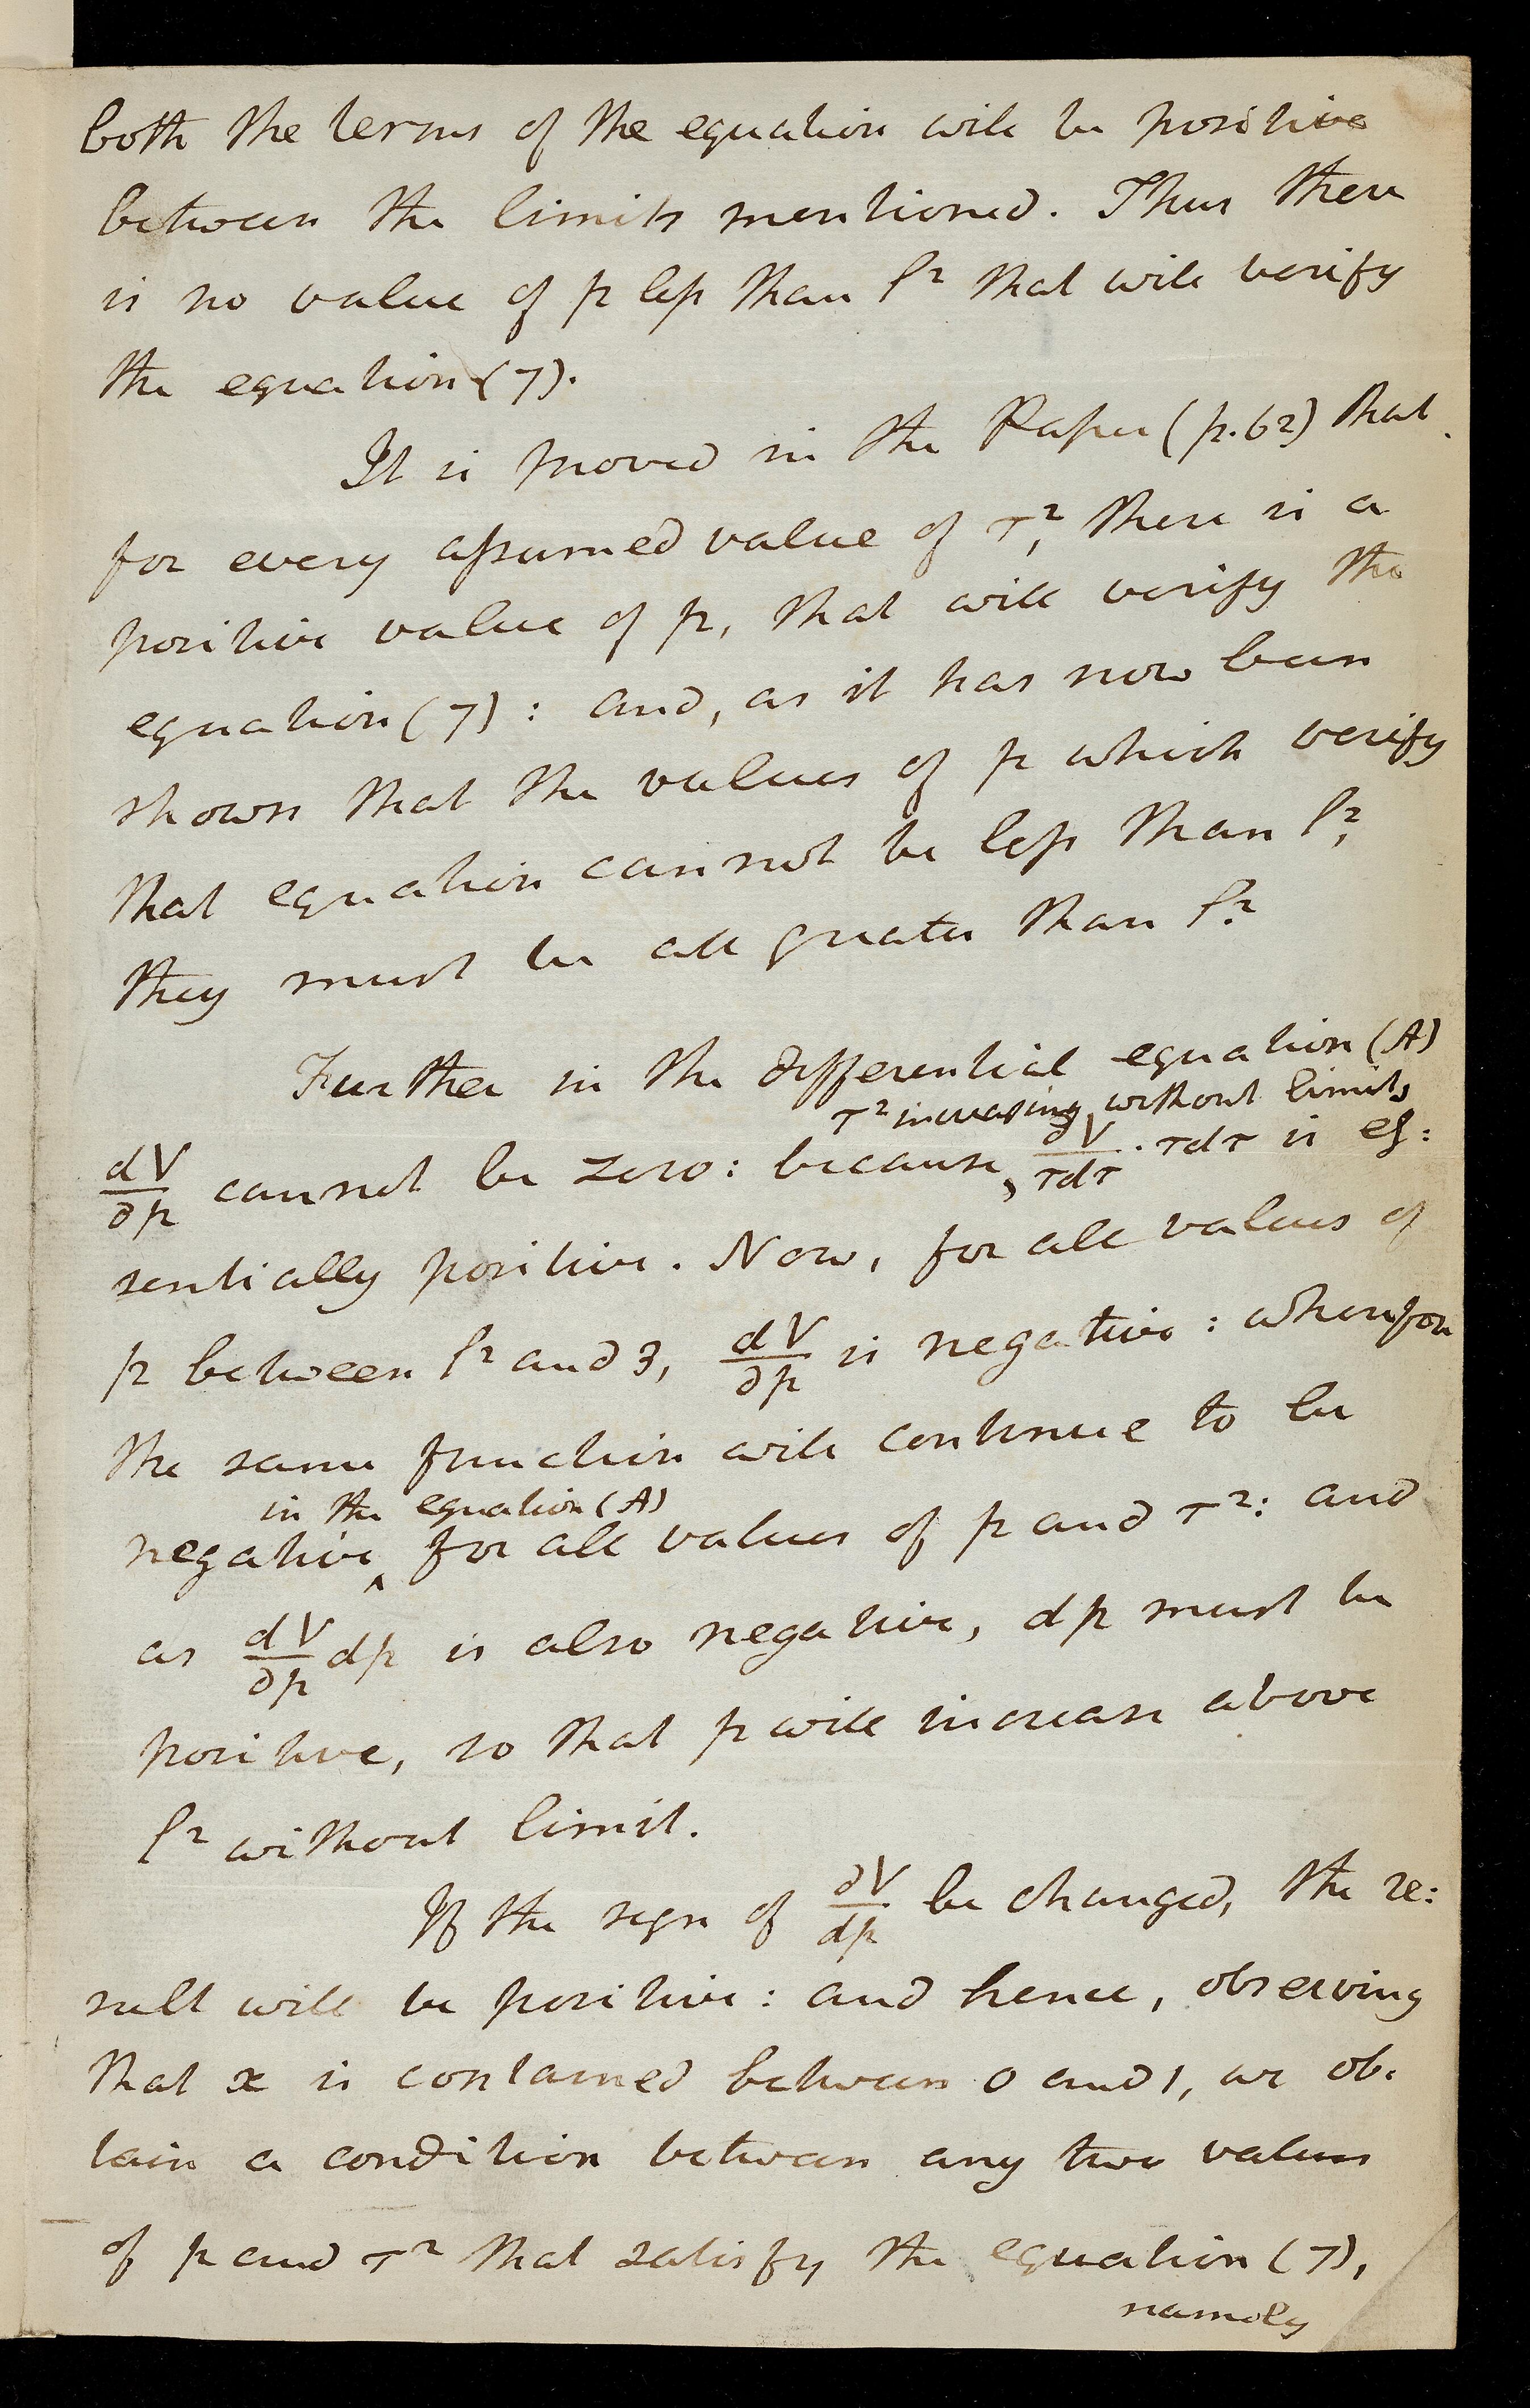 both the terms of the equation will be positive
between the limits mentioned. Thus there
is no value of p less than l² that will verify
the equation (7).
It is proved in the Paper (p. 62) that
for every assumed value of τ², there is a
positive value of p, that will verify the
equation (7): and, as it has now been
shown that the values of p which verify
that equation cannot be less than l²,
they must be all greater than l².
Further in the differential equation (A)
τ² increasing without limit,
dV/dp cannot be zero: because, dV/τdτ · τdτ is es:
sentially positive. Now, for all values of
p between l² and 3, dV/dp is negative: wherefore
the same function will continue to be
in the equation (A)
negative ‸ for all values of p and τ²: and
as dV/dp dp is also negative, dp must be
positive, so that p will increase above
l² without limit.
If the sign of dV/dp be changed, the re:
sult will be positive: and hence, observing
that x is contained between 0 and 1, we ob:
tain a condition between any two values
of p and τ² that satisfy the equation (7),
namely